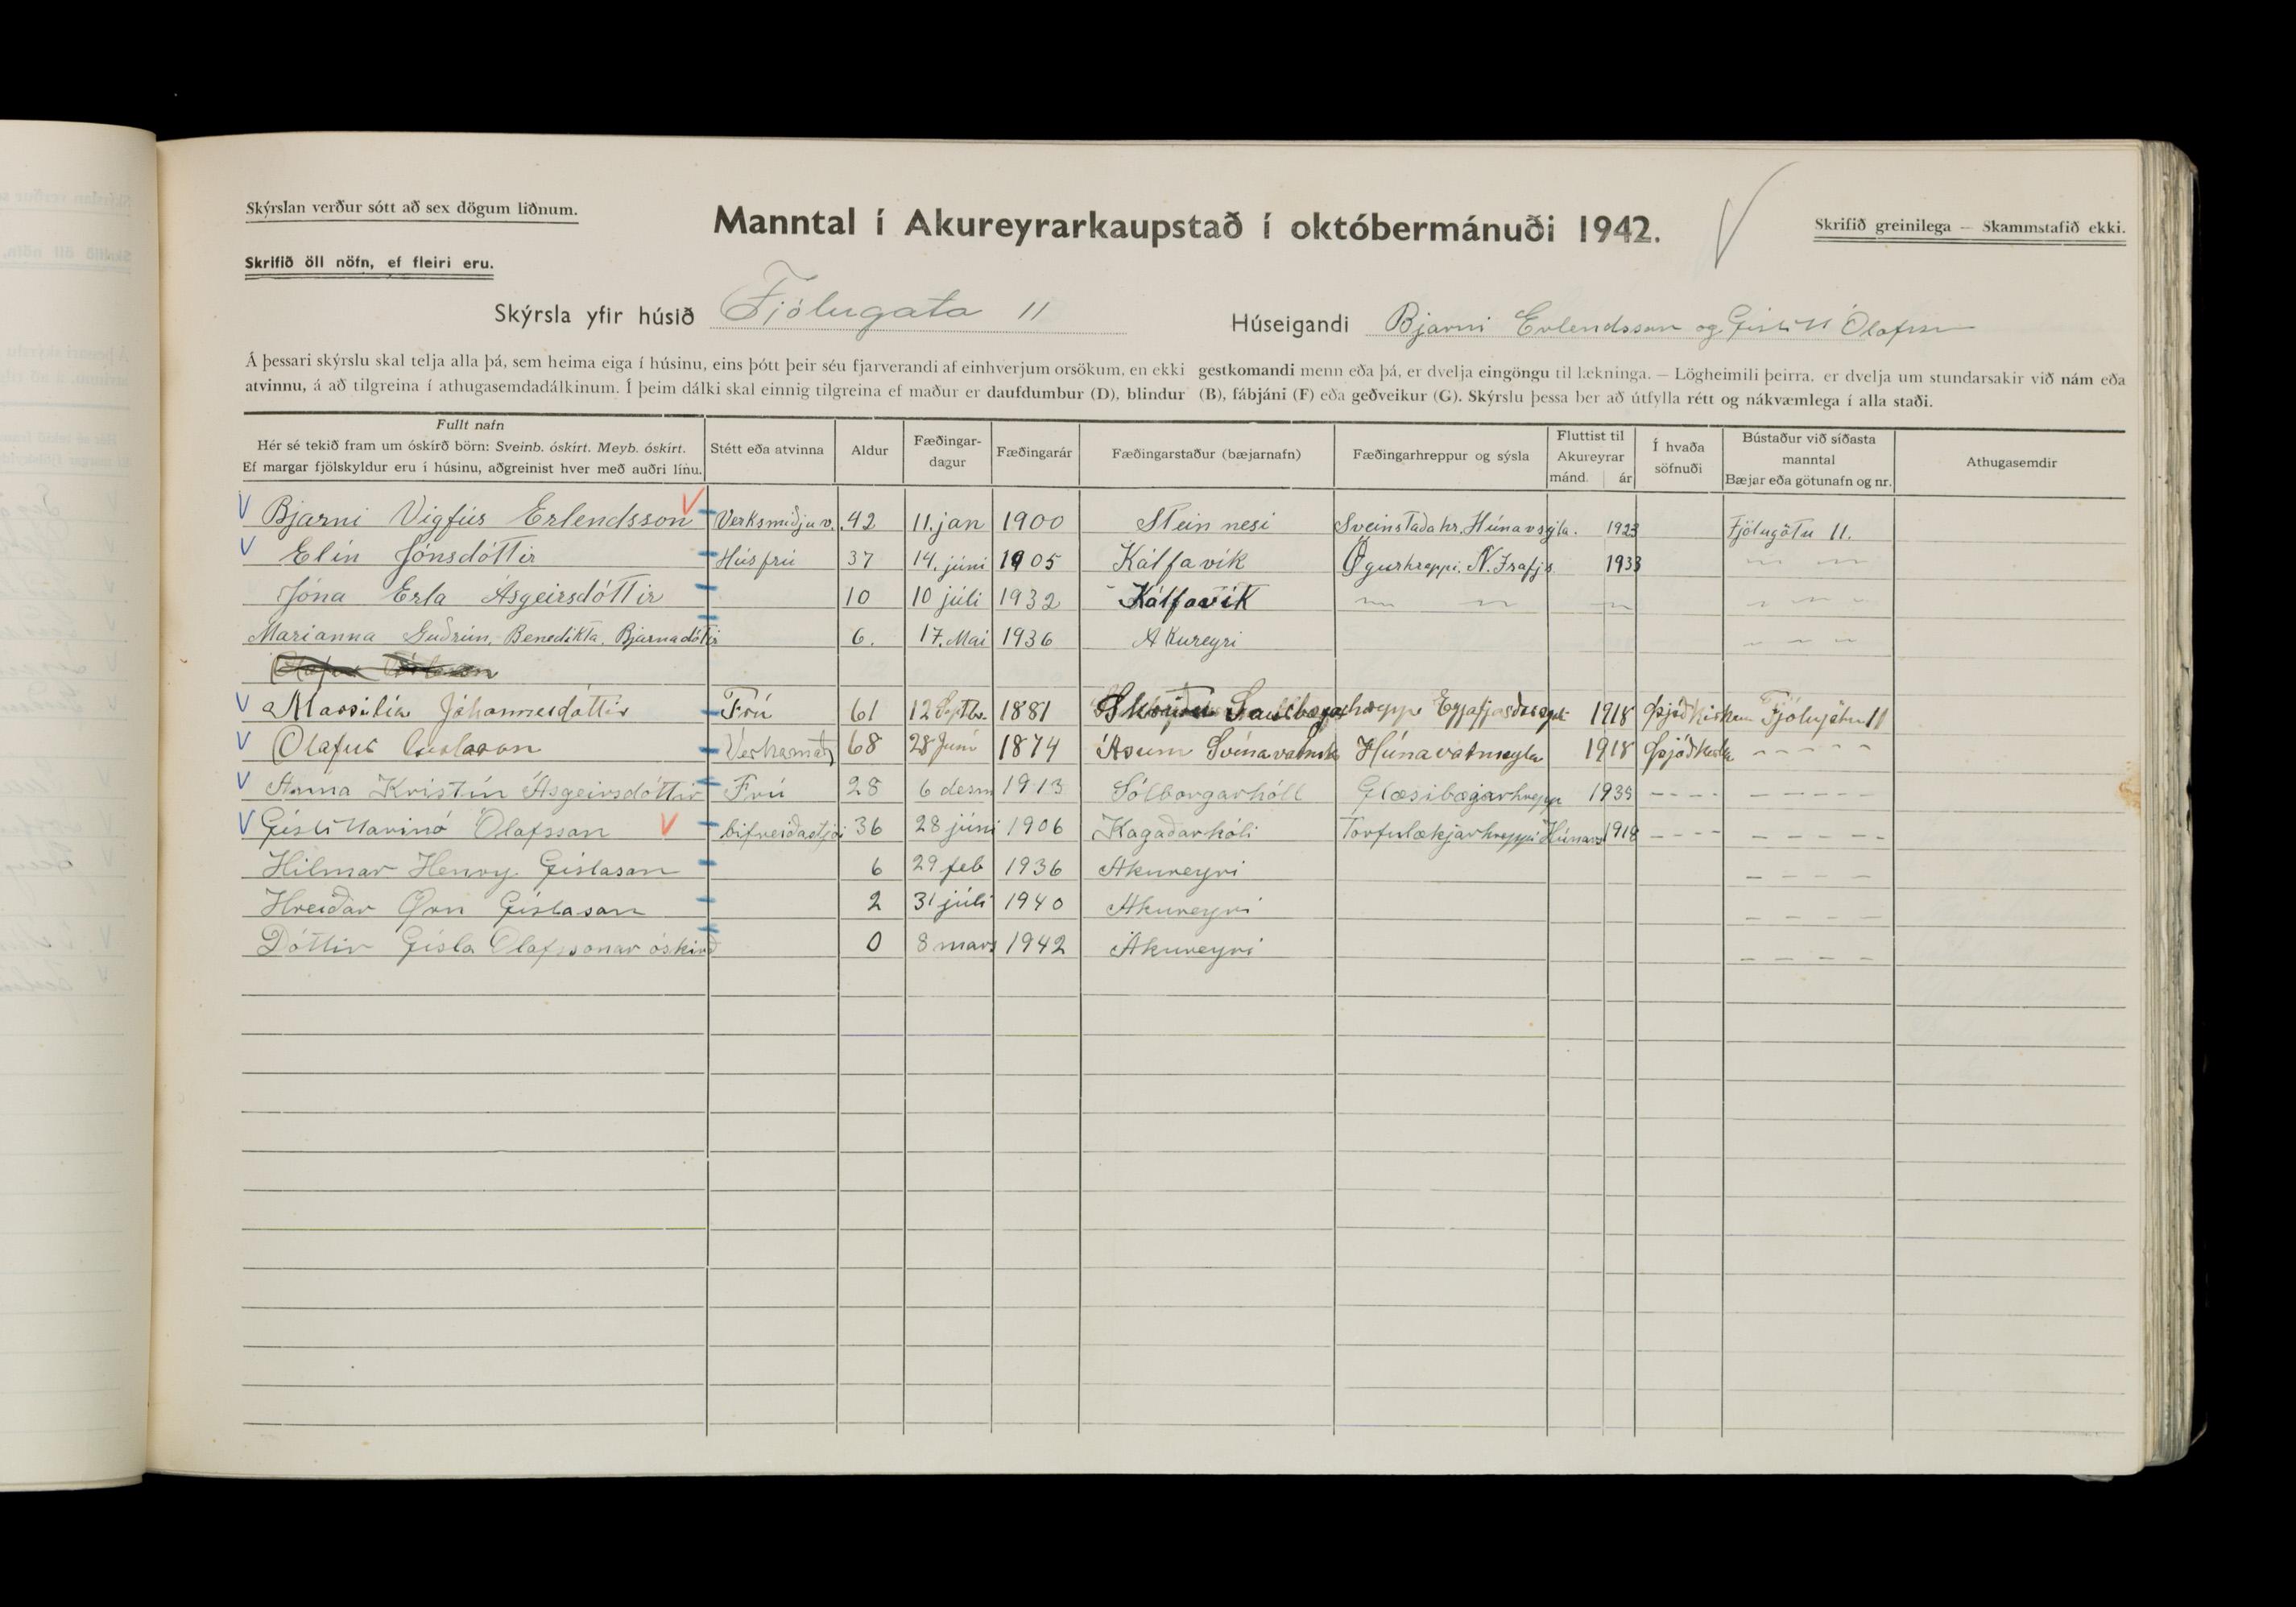 Skýrslan verður sótt að sex dögum liðnum.
Manntal í Akureyrarkaupstað í októbermánuði 1942.
Skrifið greinilega — Skammstafið ekki.
Skrifið öll nöfn, ef fleiri eru.
Skýrsla yfir húsið Fjólugata 11
Húseigandi Bjarni Erlendsson og Gísli M Ólafsson
Á þessari skýrslu skal telja alla þá, sem heima eiga í húsinu, eins þótt þeir séu fjarverandi af einhverjum orsökum, en ekki gestkomandi menn eða þá, er dvelja eingöngu til lækninga. — Lögheimili þeirra, er dvelja um stundarsakir við nám eða
atvinnu, á að tilgreina í athugasemdadálkinum. Í þeim dálki skal einnig tilgreina ef maður er daufdumbur (D), blindur (B), fábjáni (F) eða geðveikur (G). Skýrslu þessa ber að útfylla rétt og nákvæmlega í alla staði.
Fullt nafn
Hér sé tekið fram um óskírð börn: Sveinb. óskírt. Meyb. óskírt.
Ef margar fjölskyldur eru í húsinu, aðgreinist hver með auðri línu.
Stétt eða atvinna
Aldur
Fæðingar-
dagur
Fæðingarár
Fæðingarstaður (bæjarnafn)
Fæðingarhreppur og sýsla
Fluttist til
Akureyrar
mánd. ár
Í hvaða
söfnuði
Bústaður við síðasta
manntal
Bæjar eða götunafn og nr.
Athugasemdir
Bjarni Vigfús Erlendsson Verksmiðjuv. 42 11. jan 1900 Steinnesi Sveinstaðahr. Húnavsýla. 1923 Fjólugötu 11.
Elín Jónsdóttir Húsfrú 37 14. júni 1905 Kálfavík Ögurhreppi. N. Ísafjs 1933 〃 〃
Jóna Erla Ásgeirsdóttir 10 10 júlí 1932 Kálfavík 〃 〃 〃 〃 〃 〃
Marianna Guðrún, Benedikta, Bjarnadóttir 6. 17. Mai 1936 Akureyri 〃 〃 〃
Marsilía Jóhannesdóttir Frú 61 12 Septbr. 1881 Saurbæjarhreppi Eyjafjarðarsýslu 1918 Þjóðkirkju Fjólugötu 11
Ólafur Gíslason Verkamað 68 28 Júní 1874 Ásum Svínavatnshr Húnavatnssýla 1918 Þjóðkirkju - - - - -
Anna Kristín Ásgeirsdóttir Frú 28 6 desm 1913 Sólborgarhóll Glæsibæjarhrepp 1935 - - - - - - - - -
Gísli Marinó Ólafsson bifreiðastjóri 36 28 júni 1906 Kagaðarhóli Torfulækjarhreppi Húnavs 1918 - - - - - - - - -
Hilmar Henry Gíslason 6 29 feb 1936 Akureyri - - - -
Hreiðar Örn Gíslason 2 31 júlí 1940 Akureyri - - - -
Dóttir Gísla Ólafssonar óskirð 0 8 mars 1942 Akureyri - - - -